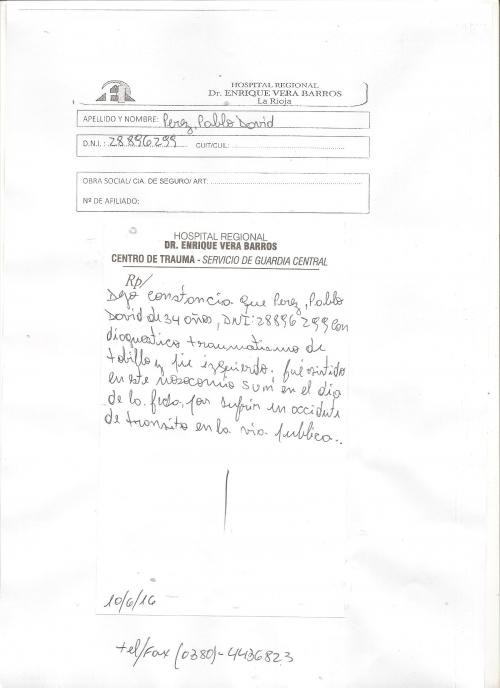 HOSPITAL REGIONAL
Dr. ENRIQUE VERA BARROS
La Rioja
APELLIDO Y NOMBRE: Perez, Pablo David
D.N.I.: 28896299 CUIT/CUIL:
OBRA SOCIAL/ CIA. DE SEGURO/ ART:
Nº DE AFILIADO:
HOSPITAL REGIONAL
DR. ENRIQUE VERA BARROS
CENTRO DE TRAUMA - SERVICIO DE GUARDIA CENTRAL
Rp/
Dejo constancia que Perez, Pablo
David de 34 años, DNI: 28896299 con
diagnostico traumatismo de
tobillo y pie izquierdo. fué asistido
en este nosocomio en el dia
de la fecha, por sufrir un accidente
de transito en la via publica..
10/6/16
tel/Fax (0380)-4436823